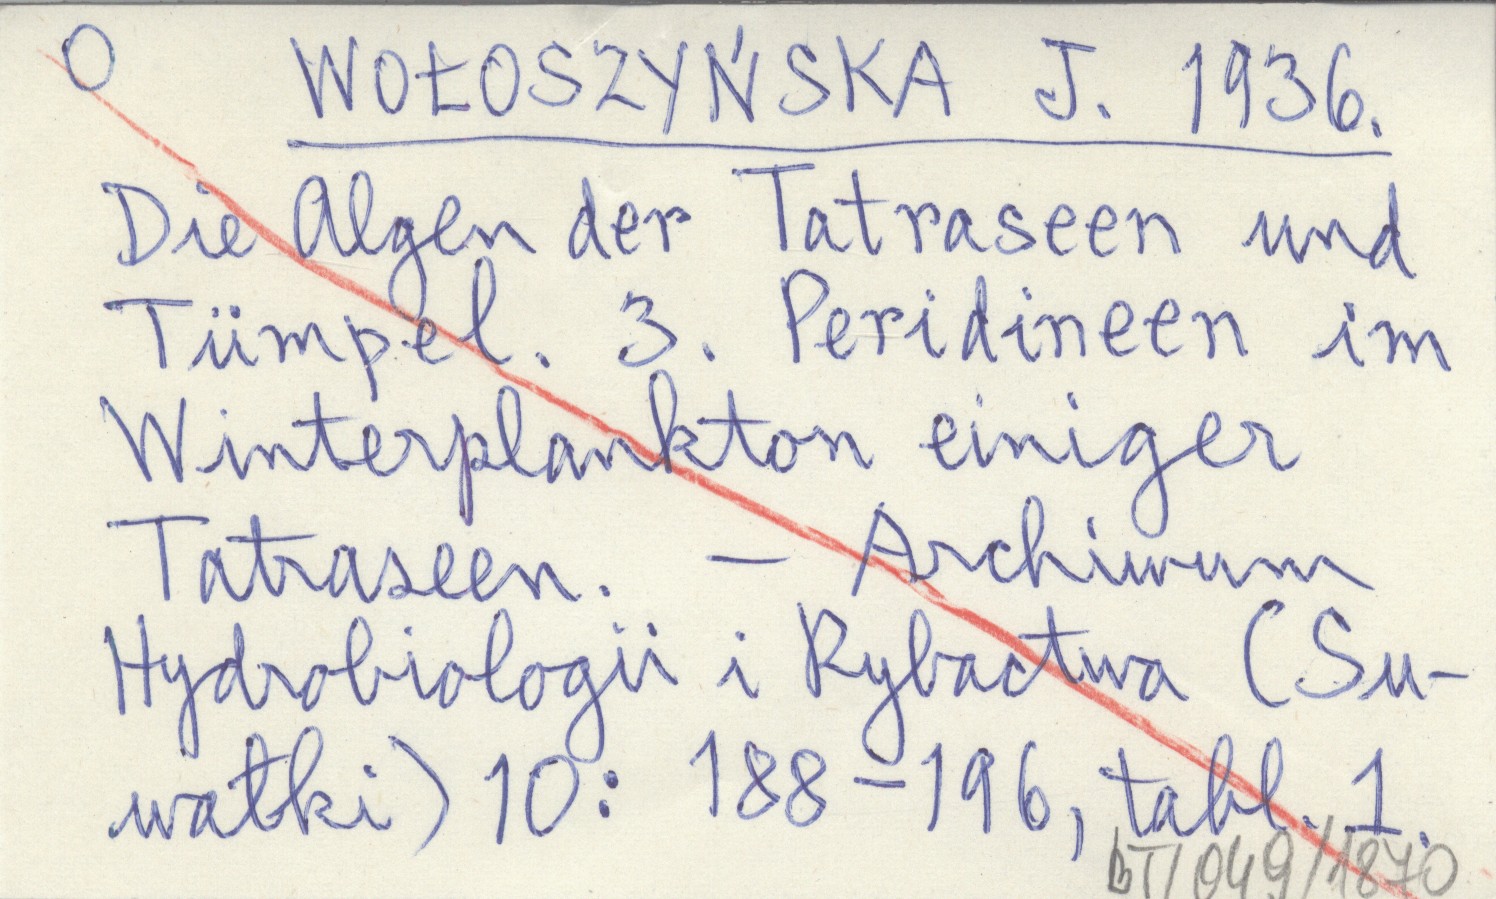 O WOŁOSZYŃSKA J. 1936.
Die Algen der Tatraseen und
Tümpel. 3. Peridineen im
Winterplankton einiger
Tatraseen. – Archiwum
Hydrobiologii i Rybactwa (Su-
wałki) 10: 188–196, tabl. 1.
BT/049/1870